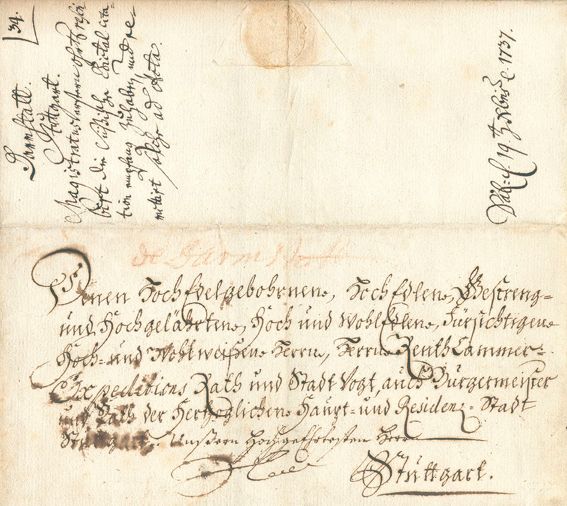 34.
Darmstatt.
Stuttgart.
Magistratus
die Edictal cita-
tion empfang zuhaben, und re-
ad Acta.
Präs: d. 19 Xbris 1737.
de Darmstatt
Denen HochEdelgebohrnen, HochEdlen, Gestreng-
und Hochgelährten, Hoch und WohlEdlen, Fürsichtigen
Hoch- und Wohlweisen Herrn, Herrn Renth Cammer-
Expeditions Rath und Stadt Vogt, auch Burgermeister
und Rath der Herzoglichen Haupt- und Residenz-Stadt
Stuttgart. Unßern Hochgeehrtesten Herrn
Stuttgart.